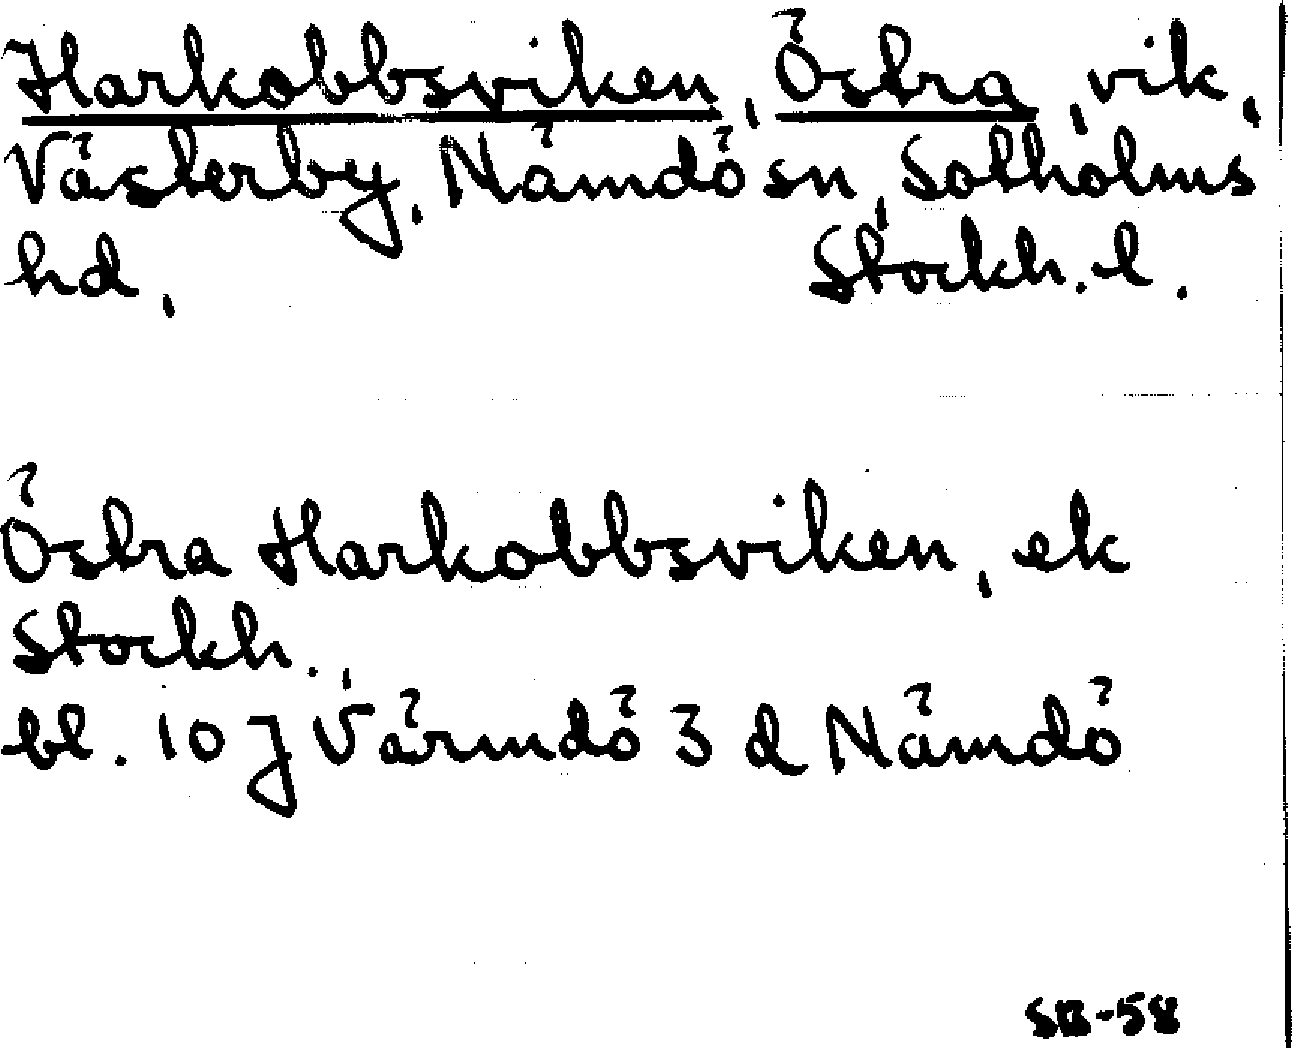 Harkobbsviken, Östra, vik,
Västerby, Nämdö sn, Sotholms
hd. Stockh. l.
Östra Harkobbsviken, ek
Stockh.,
bl. 10 J Värmdö 3 d Nämdö
SB-58